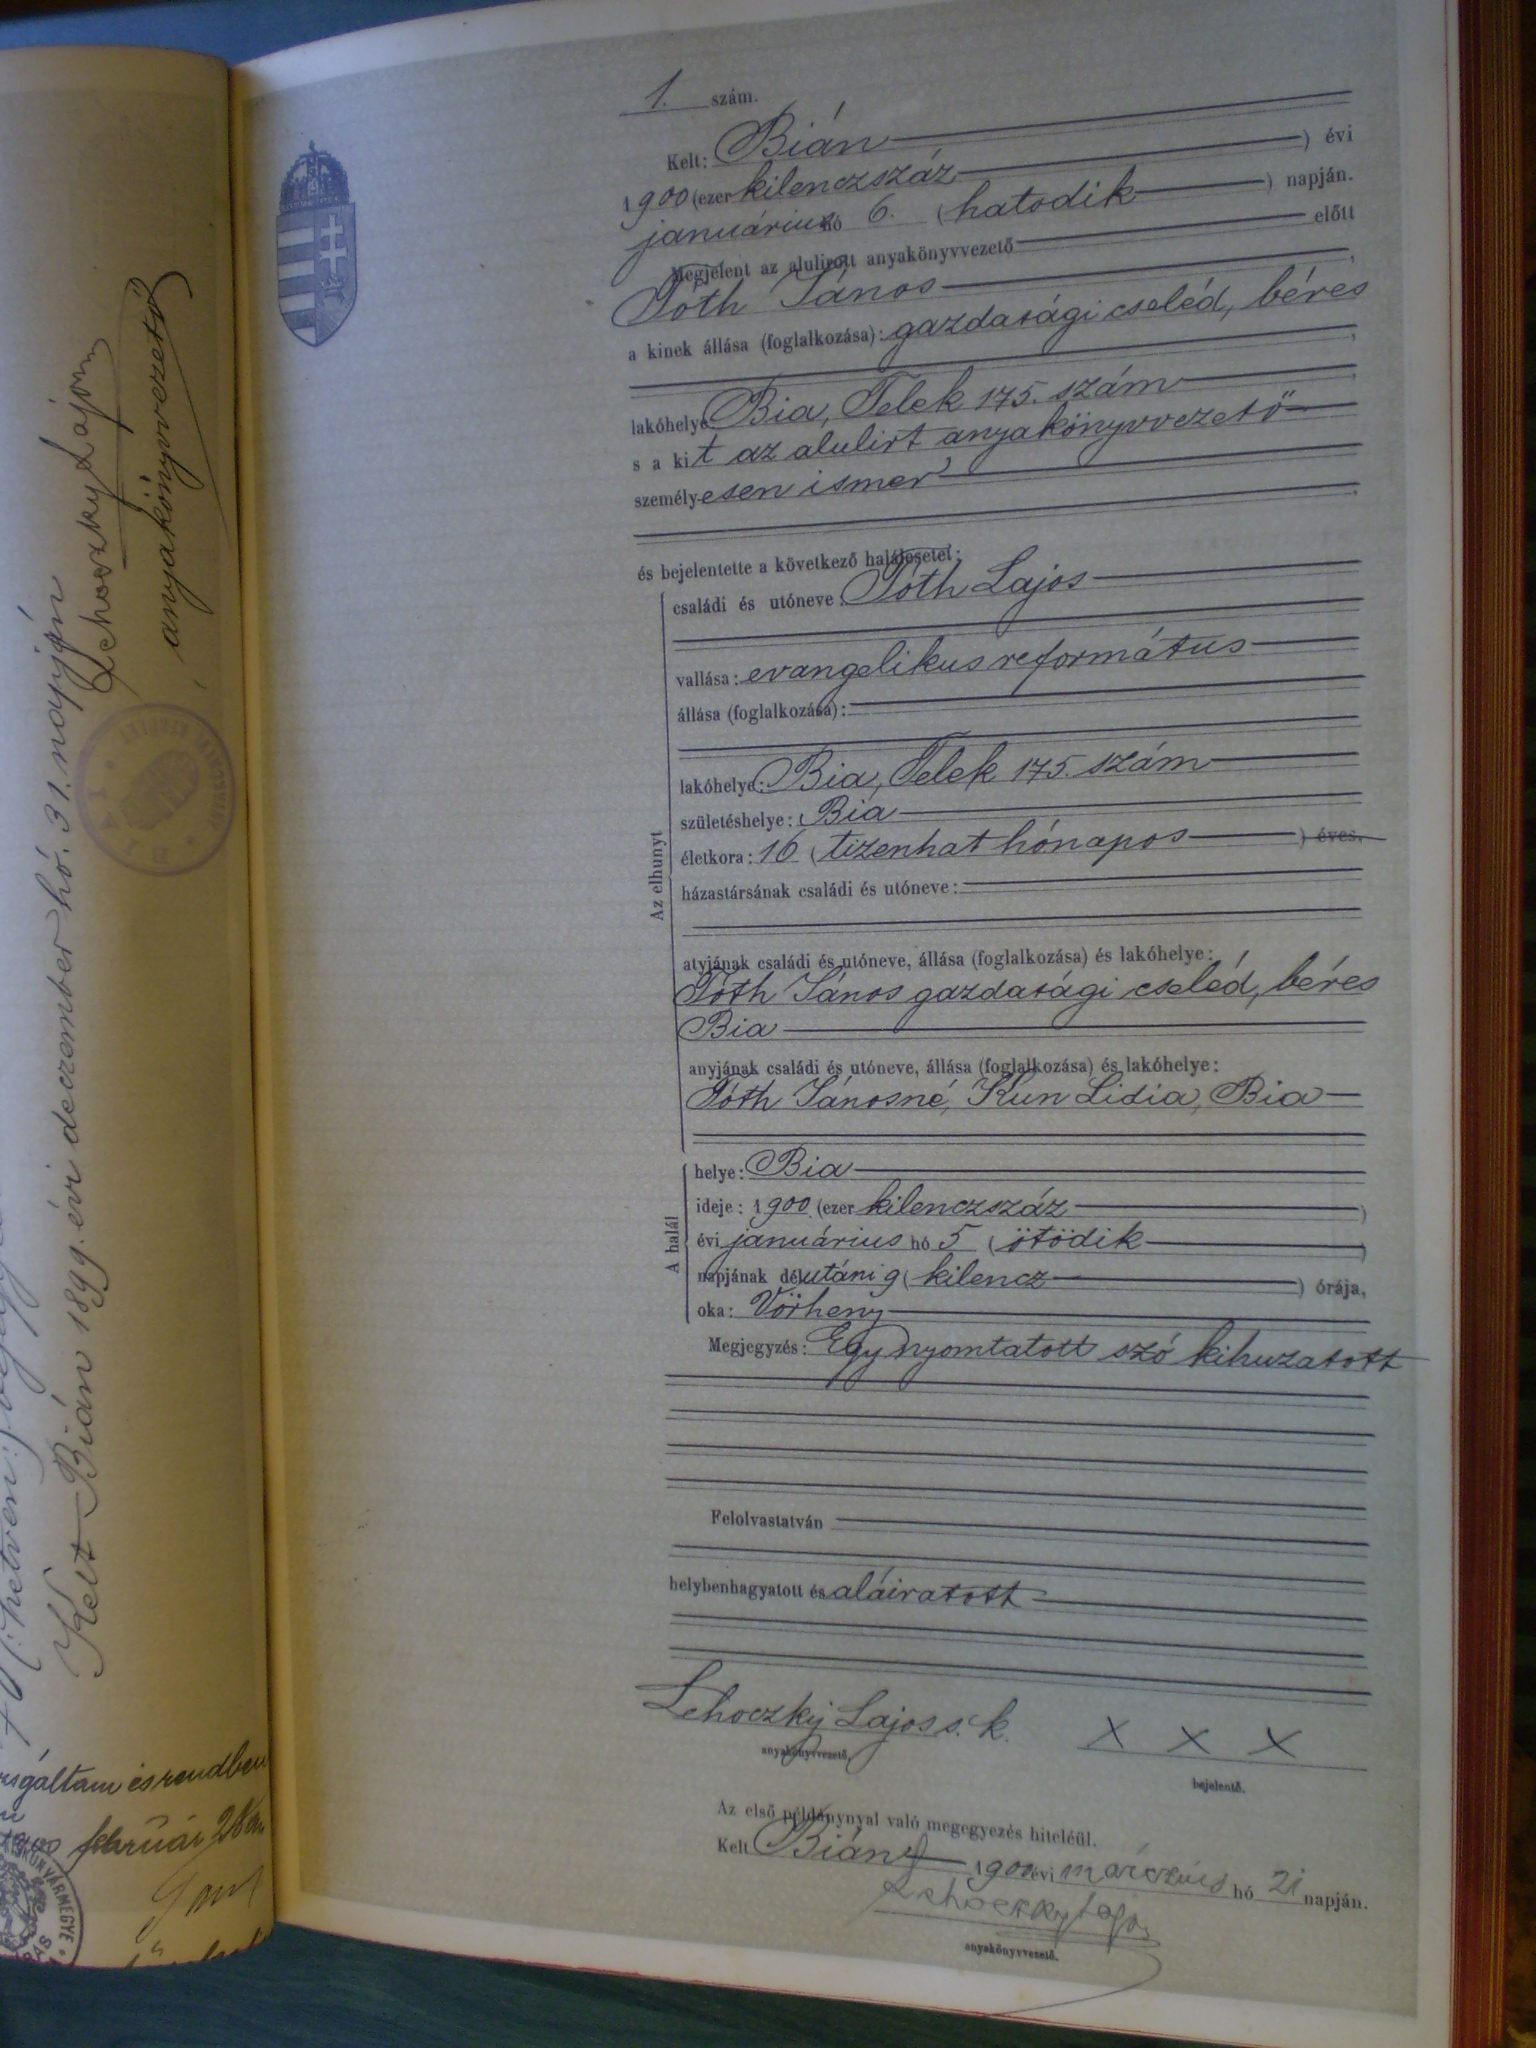 Lehoczky Lajos
anyakönyvvezető
Kelt Bián 1899. évi deczember hó. 31. napján
BIA
február
1. szám.
Kelt: Bián
1900 (ezer kilenczszáz ) évi
januárius hó 6. (hatodik ) napján.
Megjelent az alulirott anyakönyvvezető előtt
Tóth János
a kinek állása (foglalkozása): gazdasági cseléd, béres
lakóhelye Bia, Telek 175. szám
s a kit az alulirt anyakönyvvezető
személyesen ismer
és bejelentette a következő halálesetet:
Az elhunyt
családi és utóneve: Tóth Lajos
vallása: evangelikus református
állása (foglalkozása):
lakóhelye: Bia, Telek 175. szám
születéshelye: Bia
életkora: 16 (tizenhat hónapos ) éves.
házastársának családi és utóneve:
atyjának családi és utóneve, állása (foglalkozása) és lakóhelye:
Tóth János gazdasági cseléd, béres
Bia
anyjának családi és utóneve, állása (foglalkozása) és lakóhelye:
Tóth Jánosné, Kun Lidia, Bia
A halál
helye: Bia
ideje: 1900 (ezer kilenczszáz )
évi januárius hó 5 (ötödik )
napjának délutáni 9 (kilencz ) órája,
oka: Vörheny
Megjegyzés: Egy nyomtatott szó kihuzatott
Felolvastatván
helybenhagyatott és aláiratott
Lehoczky Lajos s. k. X X X
anyakönyvvezető, bejelentő.
Az első példánynyal való megegyezés hiteléül.
Kelt Bián 1900 évi márczius hó 21 napján.
Lehoczky Lajos
anyakönyvvezető.